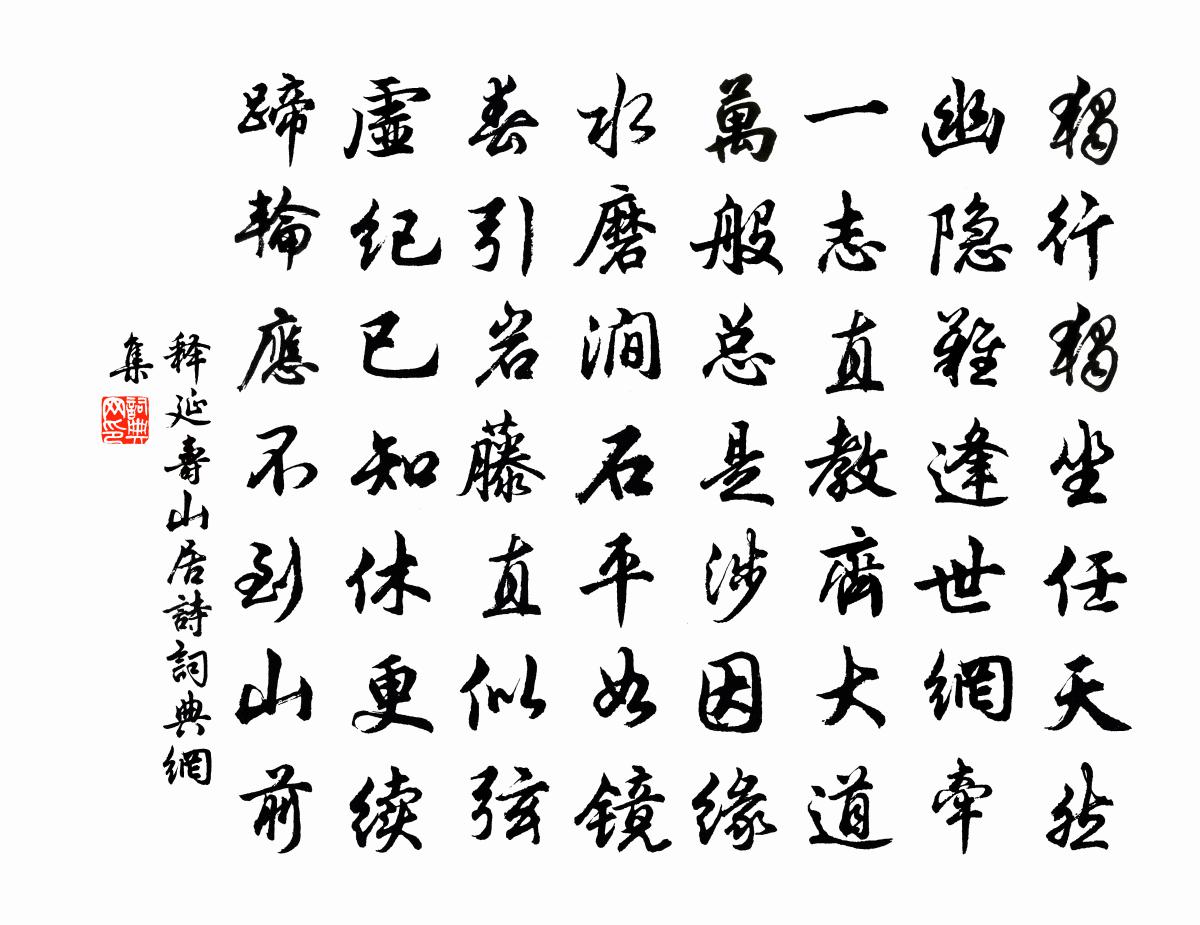 獨行獨坐任天然
幽隐難逢世網牵
一志直教齊大道
萬般总是涉因緣
水磨澗石平如镜
春引岩藤直似弦
虛纪已知休更续
蹄輪應不到山前
释延壽山居詩詞典網
集
詞典网印